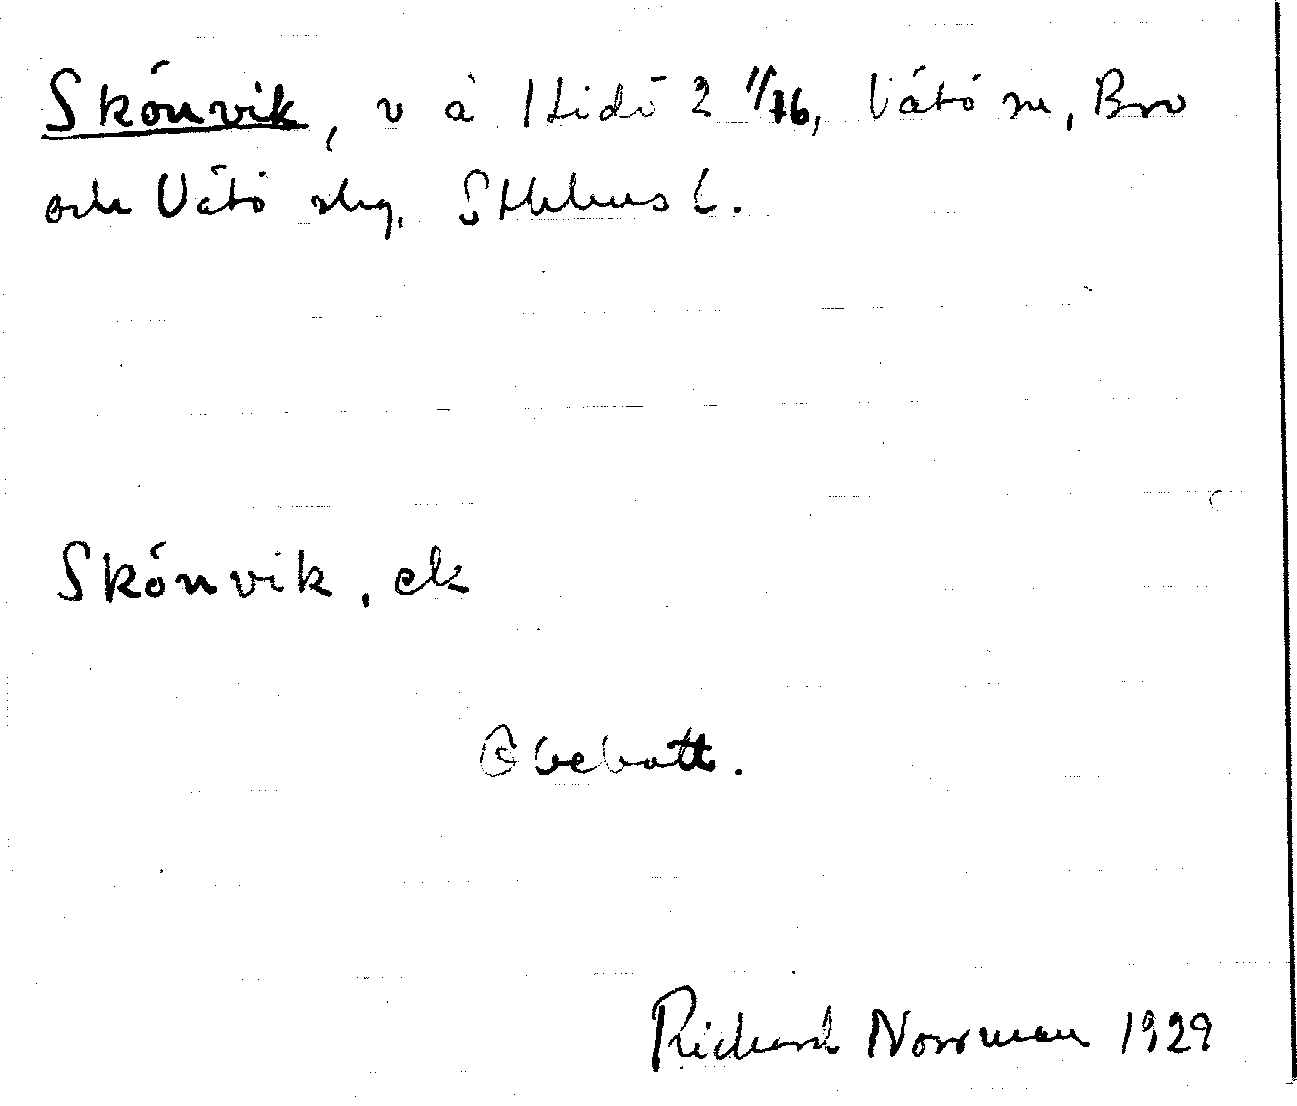 Skönvik, v å Lidö 2 11/76, Vätö sn, Bro
och Vätö skg, Sthlms l.
Skönvik, ek
Obebott.
Richard Norrman 1929